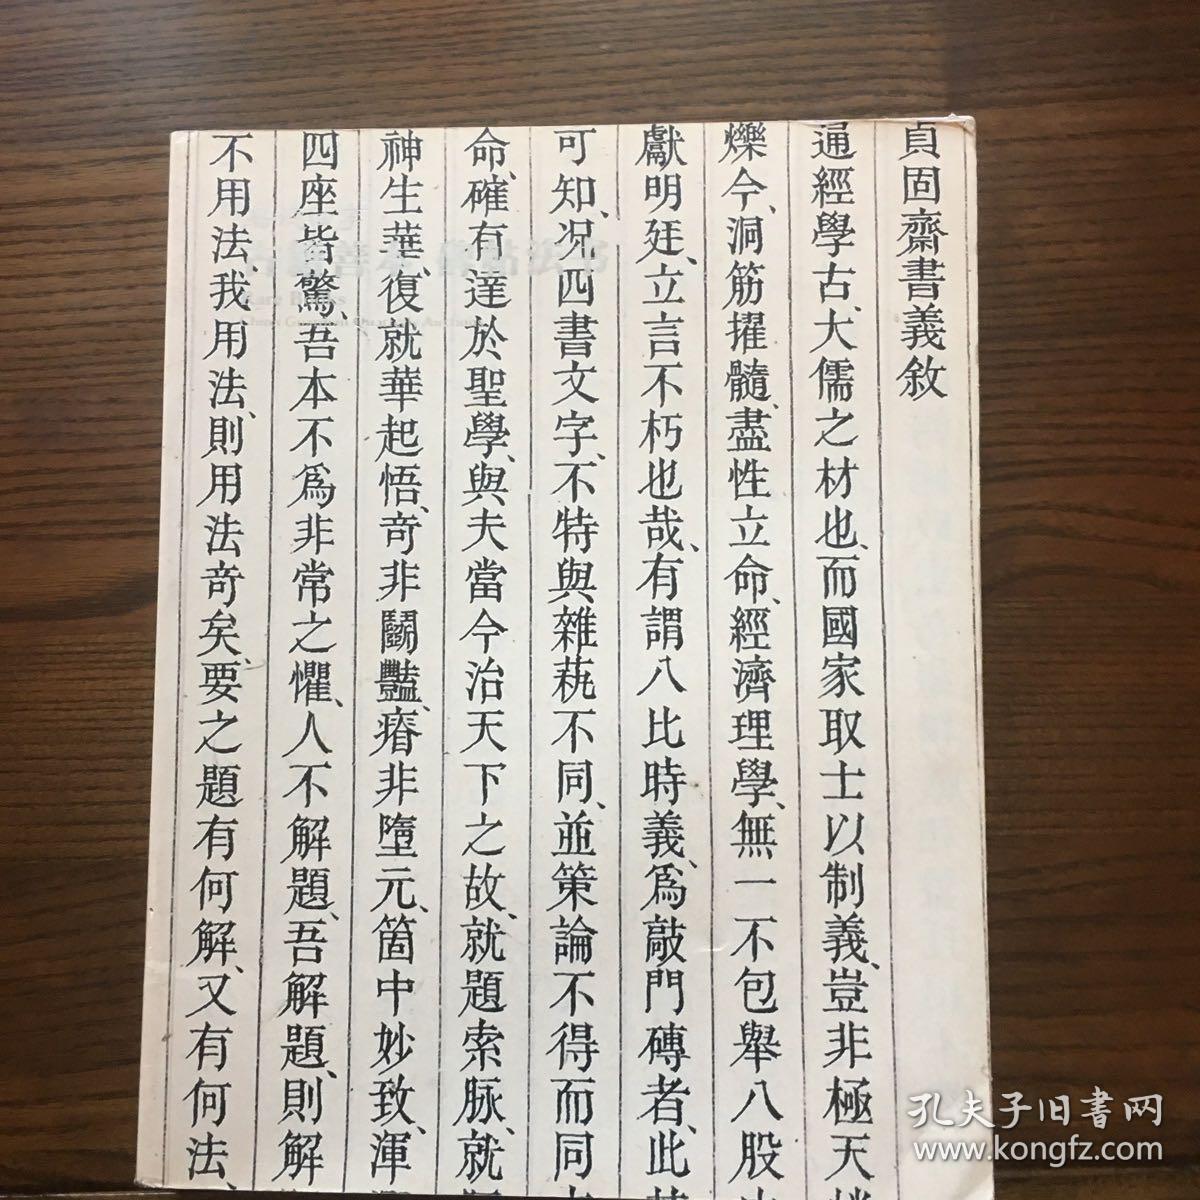 貞固齋書義敘
通經學古、大儒之材也、而國家取士以制義、豈非極天
爍今、洞筋擢髓、盡性立命、經濟理學、無一不包舉八股
獻明廷、立言不朽也哉、有謂八比時義、爲敲門磚者、此
可知、况四書文字、不特與雜蓺不同、並策論不得而同
命、確有達於聖學、與夫當今治天下之故、就題索脉、就
神生華、復就華起悟、竒非鬭豔、瘠非墮元、箇中妙致、渾
四座皆驚、吾本不爲非常之懼、人不解題、吾解題、則解
不用法、我用法、則用法竒矣、要之題有何解、又有何法、
Rare Books
孔夫子旧書网
www.kongfz.com